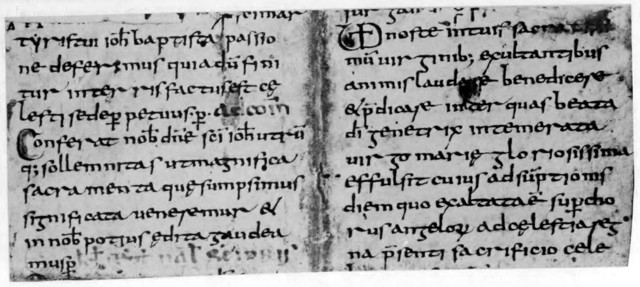 tyris tui ioh baptistę passio
ne deferimus qui adū fini
tur in terris factus est cę
lesti sede ꝑpetuus. ꝑ. ad com
Conferat nob dn̄e sc̄i ioh utrū
q; sollemnitas ut magnifica
sacramenta quę sumpsimus
significata veneremur &
in nob potius ędita gaudea
mus ꝑ
& nos te in tuis sacra
tis
mū virginib; exultantibus
animis laudare benedicere
& p̄dicare inter quas beata
di genetrix intemerata
virgo maria gloriosissima
effulsit cuius adsūptionis
diem quo exaltata ē sup̄ cho
rus angeloꝝ ad cęlestia reg
na p̄senti sacrificio cele